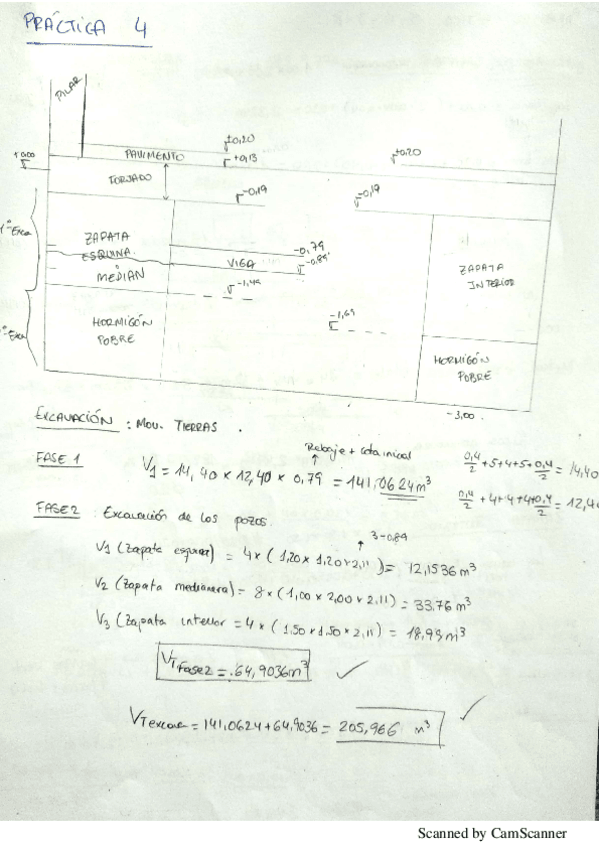 PRÁCTICA 4
PILAR
+0,20
+0,00
PAVIMENTO
+0,13
+0,20
FORJADO
-0,19
-0,19
1ª Exca
ZAPATA
ESQUINA
-0,79
VIGA
-0,89
MEDIAN
-1,49
ZAPATA
INTERIOR
HORMIGÓN
POBRE
-1,69
HORMIGÓN
POBRE
-3,00
EXCAVACIÓN : Mov. TIERRAS.
Rebaje + cota inicial
FASE 1 V1 = 14,40 x 12,40 x 0,79 = 141,0624 m³
0,4/2 +5+4+5+ 0,4/2 = 14,40
0,4/2 +4+4+4+ 0,4/2 = 12,4
FASE 2 : Excavación de los pozos.
3-0,89
V1 (Zapata esquina) = 4x (1,20 x 1,20 x 2,11) = 12,1536 m³
V2 (Zapata medianera) = 8x (1,00 x 2,00 x 2,11) = 33,76 m³
V3 (Zapata interior = 4x (1,50 x 1,50 x 2,11) = 18,99 m³
VT Fase 2 = 64,9036 m³
VT excav = 141,0624 + 64,9036 = 205,966 m³
Scanned by CamScanner